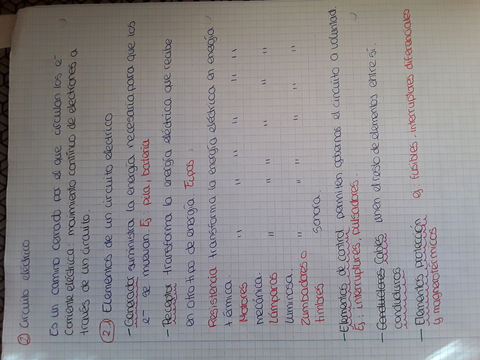 ② Circuito eléctrico
Es un camino cerrado por el que circulan los e-
Corriente eléctrica: movimiento continuo de electrones a
través de un circuito.
2.1 Elementos de un circuito eléctrico
- Generador suministra la energía necesaria para que los
e- se muevan Ej pila, batería
- Receptor transforma la energía eléctrica que recibe
en otro tipo de energía Tipos:
Resistencia transforma la energía eléctrica en energía
térmica.
Motores " " " " " "
mecánica.
Lámparas " " " " " "
luminosa.
Zumbadores o " " " " "
timbres sonora.
- Elementos de control permiten gobernar el circuito a voluntad.
Ej: interruptores, pulsadores.
- Conductores Cables unen el resto de elementos entre sí.
conductores
- Elementos protección ej fusibles, interruptores diferenciales
y magnetotérmicos